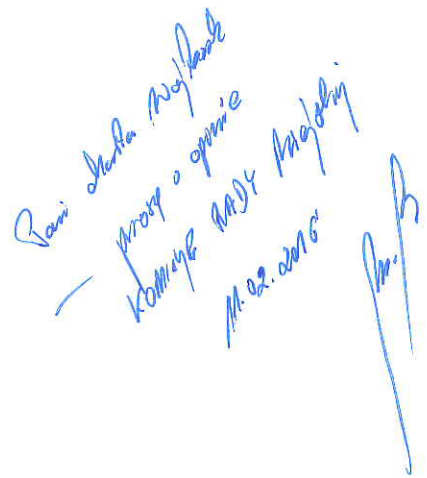 Pani Marta
— proszę o opinię
Komisji RADY Miejskiej
11.02.2016